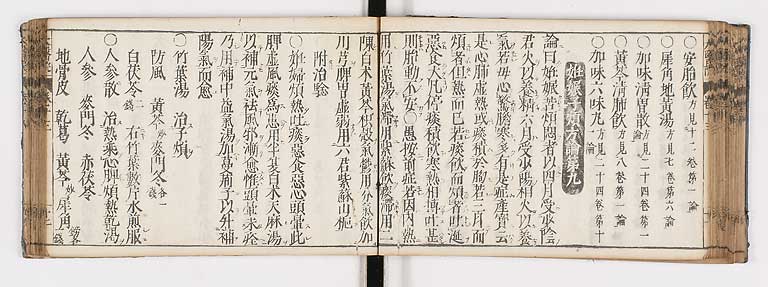 〇安胎飲 方見十二卷第一論
〇犀角地黃湯 方見七卷第六論
〇加味清胃散 方見二十四卷第一論
〇黃芩清肺飲 方見八卷第一論
〇加味六味丸 方見二十四卷第十論
妊娠子煩方論第九
論曰妊娠苦煩悶者以四月受少陰
君火以養精六月受少陽相火以養
氣若母心驚膽寒多有是症產寶云
是心肺虛熱或痰積於胸若三月而
煩者但熱而已若痰飲而煩者吐涎
惡食大凡停痰積飲寒熱相搏吐甚
則胎動不安〇愚按前症若因內熱
用竹葉湯氣滯用紫蘇飲痰滯用二
陳白朮黃芩枳殼氣鬱用分氣飲加
川芎脾胃虛弱用六君紫蘇山梔
附治驗
〇妊婦煩熱吐痰惡食惡心頭暈此
脾虛風痰為患用半夏白朮天麻湯
以補元氣祛風邪漸愈惟頭暈未痊
乃用補中益氣湯加蔓荊子以升補
陽氣而愈
〇竹葉湯 治子煩
防風 黃芩 麥門冬各一錢
白茯苓二錢 右竹葉數片水煎服
〇人參散 治熱乘心脾煩熱乾渴
人參 麥門冬 赤茯苓
地骨皮 乾葛 黃芩炒 犀角鎊各一錢